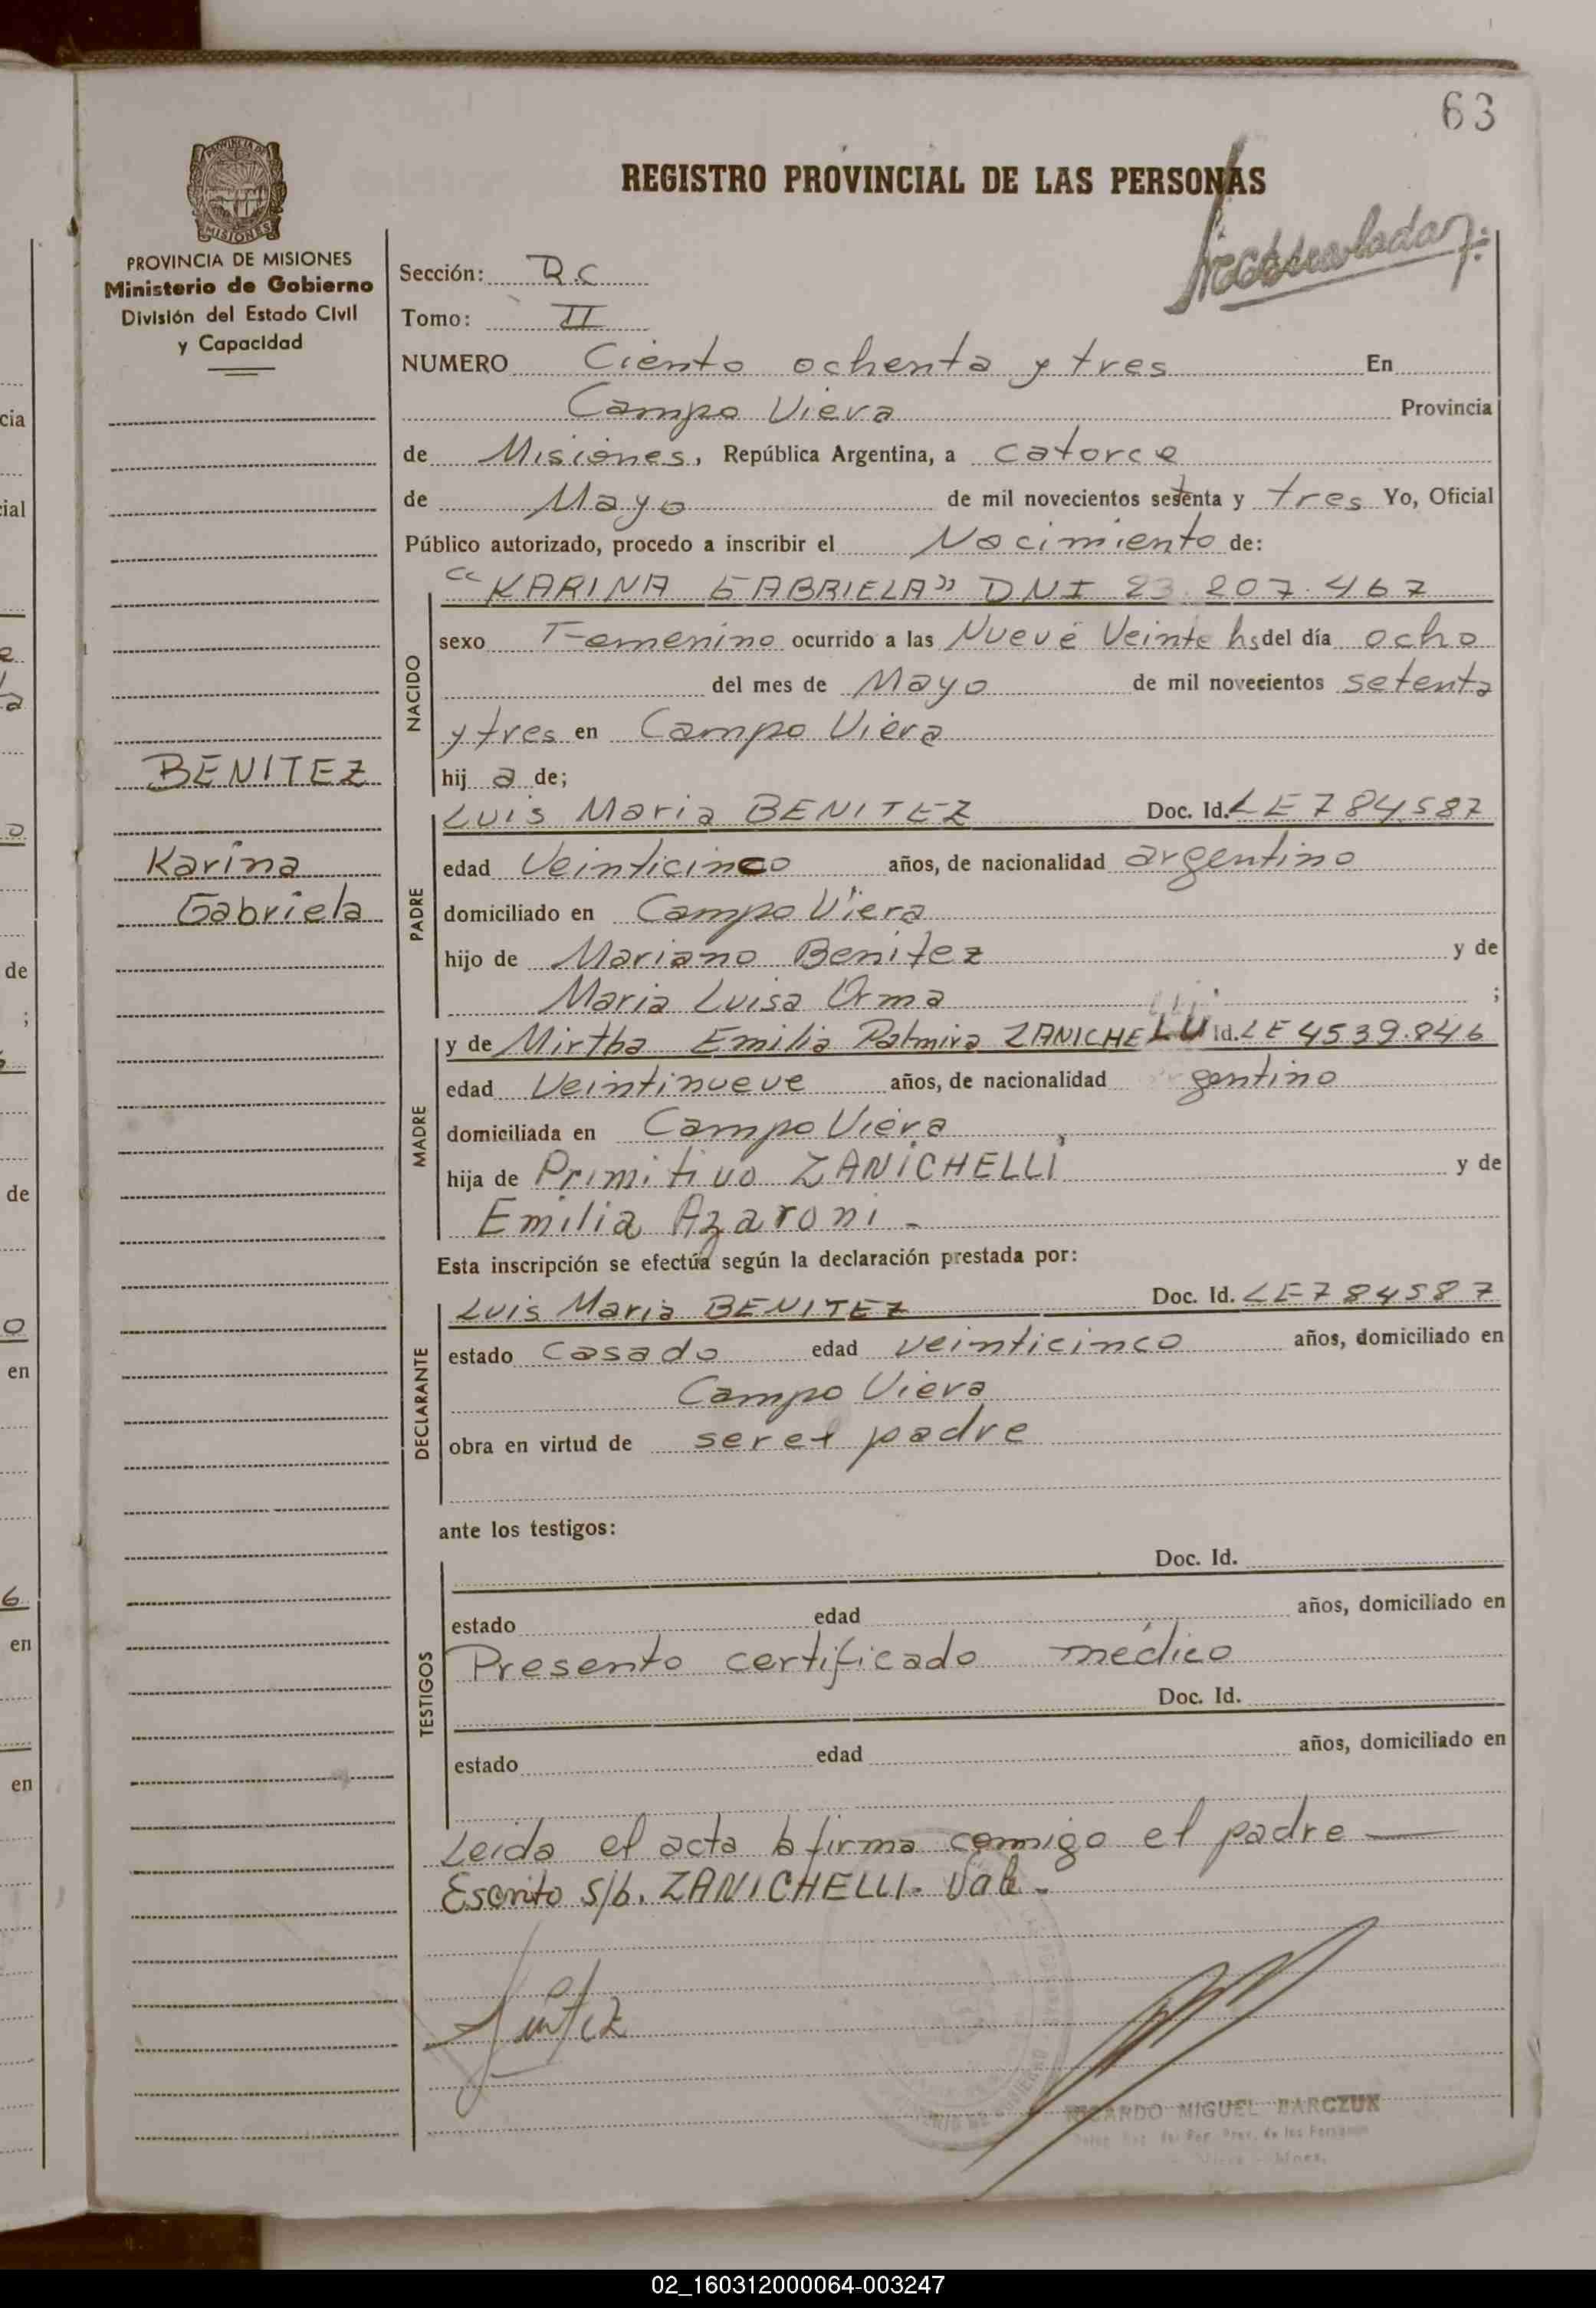 63
REGISTRO PROVINCIAL DE LAS PERSONAS
PROVINCIA DE MISIONES
Ministerio de Gobierno
División del Estado Civil
y Capacidad
BENITEZ
Karina
Gabriela
Sección: R.C
Tomo: II
NUMERO Ciento ochenta y tres En
Campo Viera Provincia
de Misiones, República Argentina, a catorce
de Mayo de mil novecientos setenta y tres Yo, Oficial
Público autorizado, procedo a inscribir el Nacimiento de:
"KARINA GABRIELA" DNI 23.207.467
NACIDO
sexo Femenino ocurrido a las Nueve Veinte hs del día ocho
del mes de Mayo de mil novecientos setenta
y tres en Campo Viera
hij a de;
PADRE
Luis Maria BENITEZ Doc. Id. LE 784587
edad Veinticinco años, de nacionalidad argentino
domiciliado en Campo Viera
hijo de Mariano Benitez y de
Maria Luisa Orma ;
MADRE
y de Mirtha Emilia Palmira ZANICHELLI Id. LE 4539.846
edad Veintinueve años, de nacionalidad argentino
domiciliada en Campo Viera
hija de Primitivo ZANICHELLI y de
Emilia Azaroni -
Esta inscripción se efectúa según la declaración prestada por:
DECLARANTE
Luis Maria BENITEZ Doc. Id. LE 784587
estado Casado edad veinticinco años, domiciliado en
Campo Viera
obra en virtud de ser el padre
ante los testigos:
TESTIGOS
Doc. Id.
estado edad años, domiciliado en
Presento certificado médico
Doc. Id.
estado edad años, domiciliado en
Leida el acta la firma conmigo el padre —
Escrito s/b. ZANICHELLI. Vale -
RICARDO MIGUEL BARCZUK
02_160312000064-003247